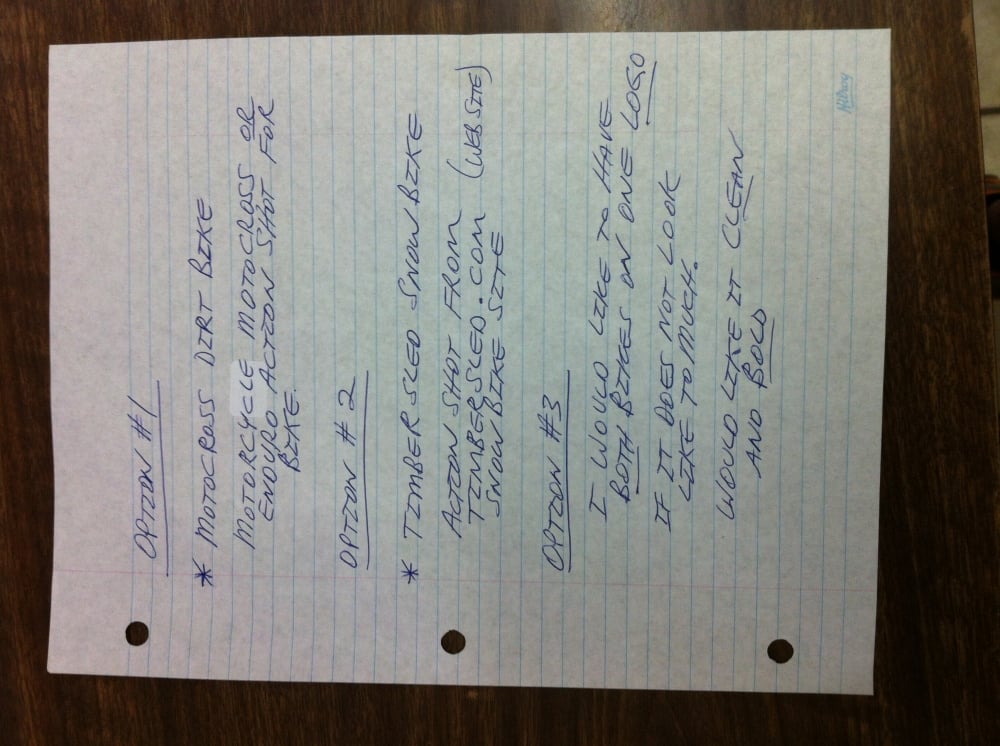 OPTION #1
* MOTOCROSS DIRT BIKE
MOTORCYCLE MOTOCROSS OR
ENDURO ACTION SHOT FOR
BIKE.
OPTION # 2
* TIMBERSLED SNOWBIKE
ACTION SHOT FROM
TIMBERSLED.COM (WEBSITE)
SNOWBIKE SITE
OPTION #3
I WOULD LIKE TO HAVE
BOTH BIKES ON ONE LOGO
IF IT DOES NOT LOOK
LIKE TO MUCH.
WOULD LIKE IT CLEAN
AND BOLD
Hilroy